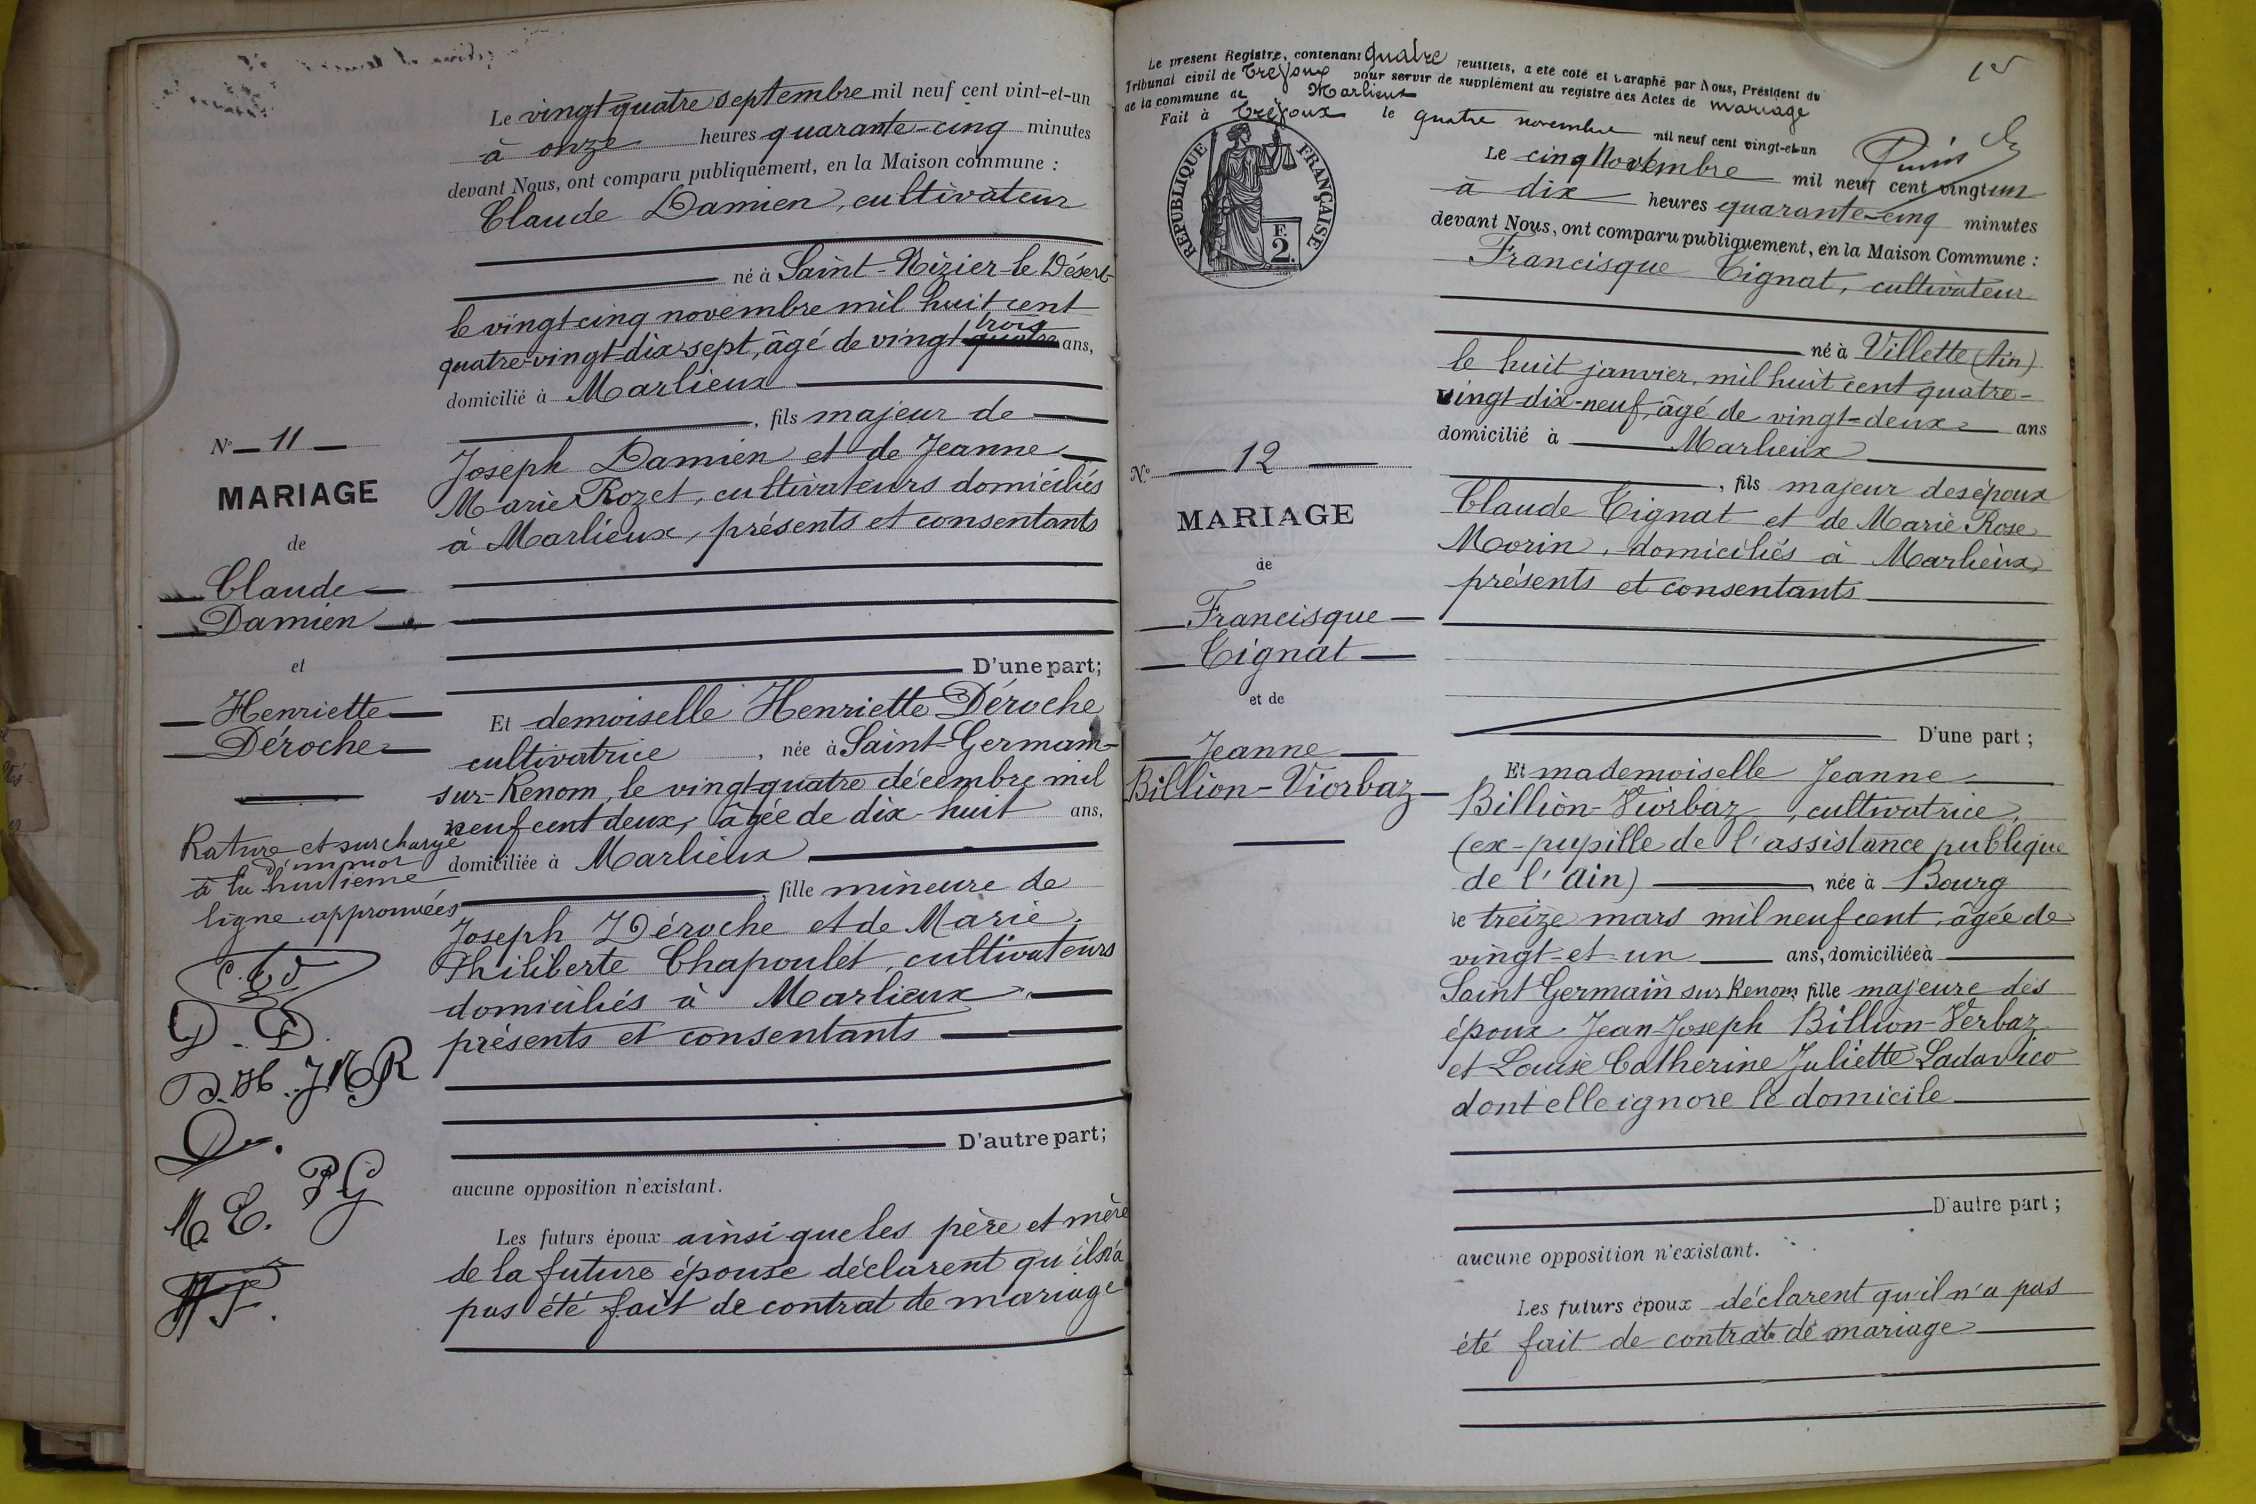 Le vingt quatre septembre mil neuf cent vint-et-un
à onze heures quarante-cinq minutes
devant Nous, ont comparu publiquement, en la Maison commune :
Claude Damien, cultivateur
né à Saint-Nizier-le-Désert
le vingt cinq novembre mil huit cent
trois
quatre-vingt-dix-sept, âgé de vingt quatre ans,
domicilié à Marlieux
, fils majeur de
Joseph Damien et de Jeanne
Marie Rozet, cultivateurs domiciliés
à Marlieux, présents et consentants
D'une part;
Et demoiselle Henriette Déroche
cultivatrice, née à Saint-Germain-
sur-Renom, le vingt-quatre décembre mil
neuf cent deux, âgée de dix-huit ans,
domiciliée à Marlieux
, fille mineure de
Joseph Déroche et de Marie
Philiberte Chapoulet, cultivateurs
domiciliés à Marlieux
présents et consentants
D'autre part;
aucune opposition n'existant.
Les futurs époux ainsi que les père et mère
de la future épouse déclarent qu'il n'a
pas été fait de contrat de mariage
N° 11
MARIAGE
de
Claude
Damien
et
Henriette
Déroche
Rature et surcharge
d'un mot
à la huitième
ligne approuvées
D. D.
D. H. J M R
M. E. P G
Le présent Registre, contenant quatre feuillets, a été coté et paraphé par Nous, Président du
Tribunal civil de Trévoux pour servir de supplément au registre des Actes de mariage
de la commune de Marlieux
Fait à Trévoux le quatre novembre mil neuf cent vingt-et-un
RÉPUBLIQUE FRANÇAISE
F.
2.
Le cinq Novembre mil neuf cent vingt un
à dix heures quarante-cinq minutes
devant Nous, ont comparu publiquement, en la Maison Commune :
Francisque Tignat, cultivateur
né à Villette (Ain)
le huit janvier, mil huit cent quatre-
vingt dix-neuf, âgé de vingt-deux ans
domicilié à Marlieux
, fils majeur des époux
Claude Tignat et de Marie Rose
Morin, domiciliés à Marlieux,
présents et consentants
D'une part ;
Et mademoiselle Jeanne
Billion-Viorbaz, cultivatrice,
(ex-pupille de l'assistance publique
de l'Ain) , née à Bourg
le treize mars mil neuf cent, âgée de
vingt-et-un ans, domiciliée à
Saint Germain sur Renom, fille majeure des
époux Jean-Joseph Billion-Verbaz
et Louise Catherine Juliette Ladavico
dont elle ignore le domicile
D'autre part ;
aucune opposition n'existant.
Les futurs époux déclarent qu'il n'a pas
été fait de contrat de mariage
N° 12
MARIAGE
de
Francisque
Tignat
et de
Jeanne
Billion-Viorbaz